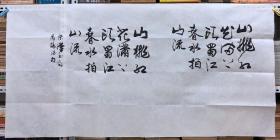 山桃红
花满上
头蜀江
春水拍
山流
山桃红
花满上
头蜀江
春水拍
山流